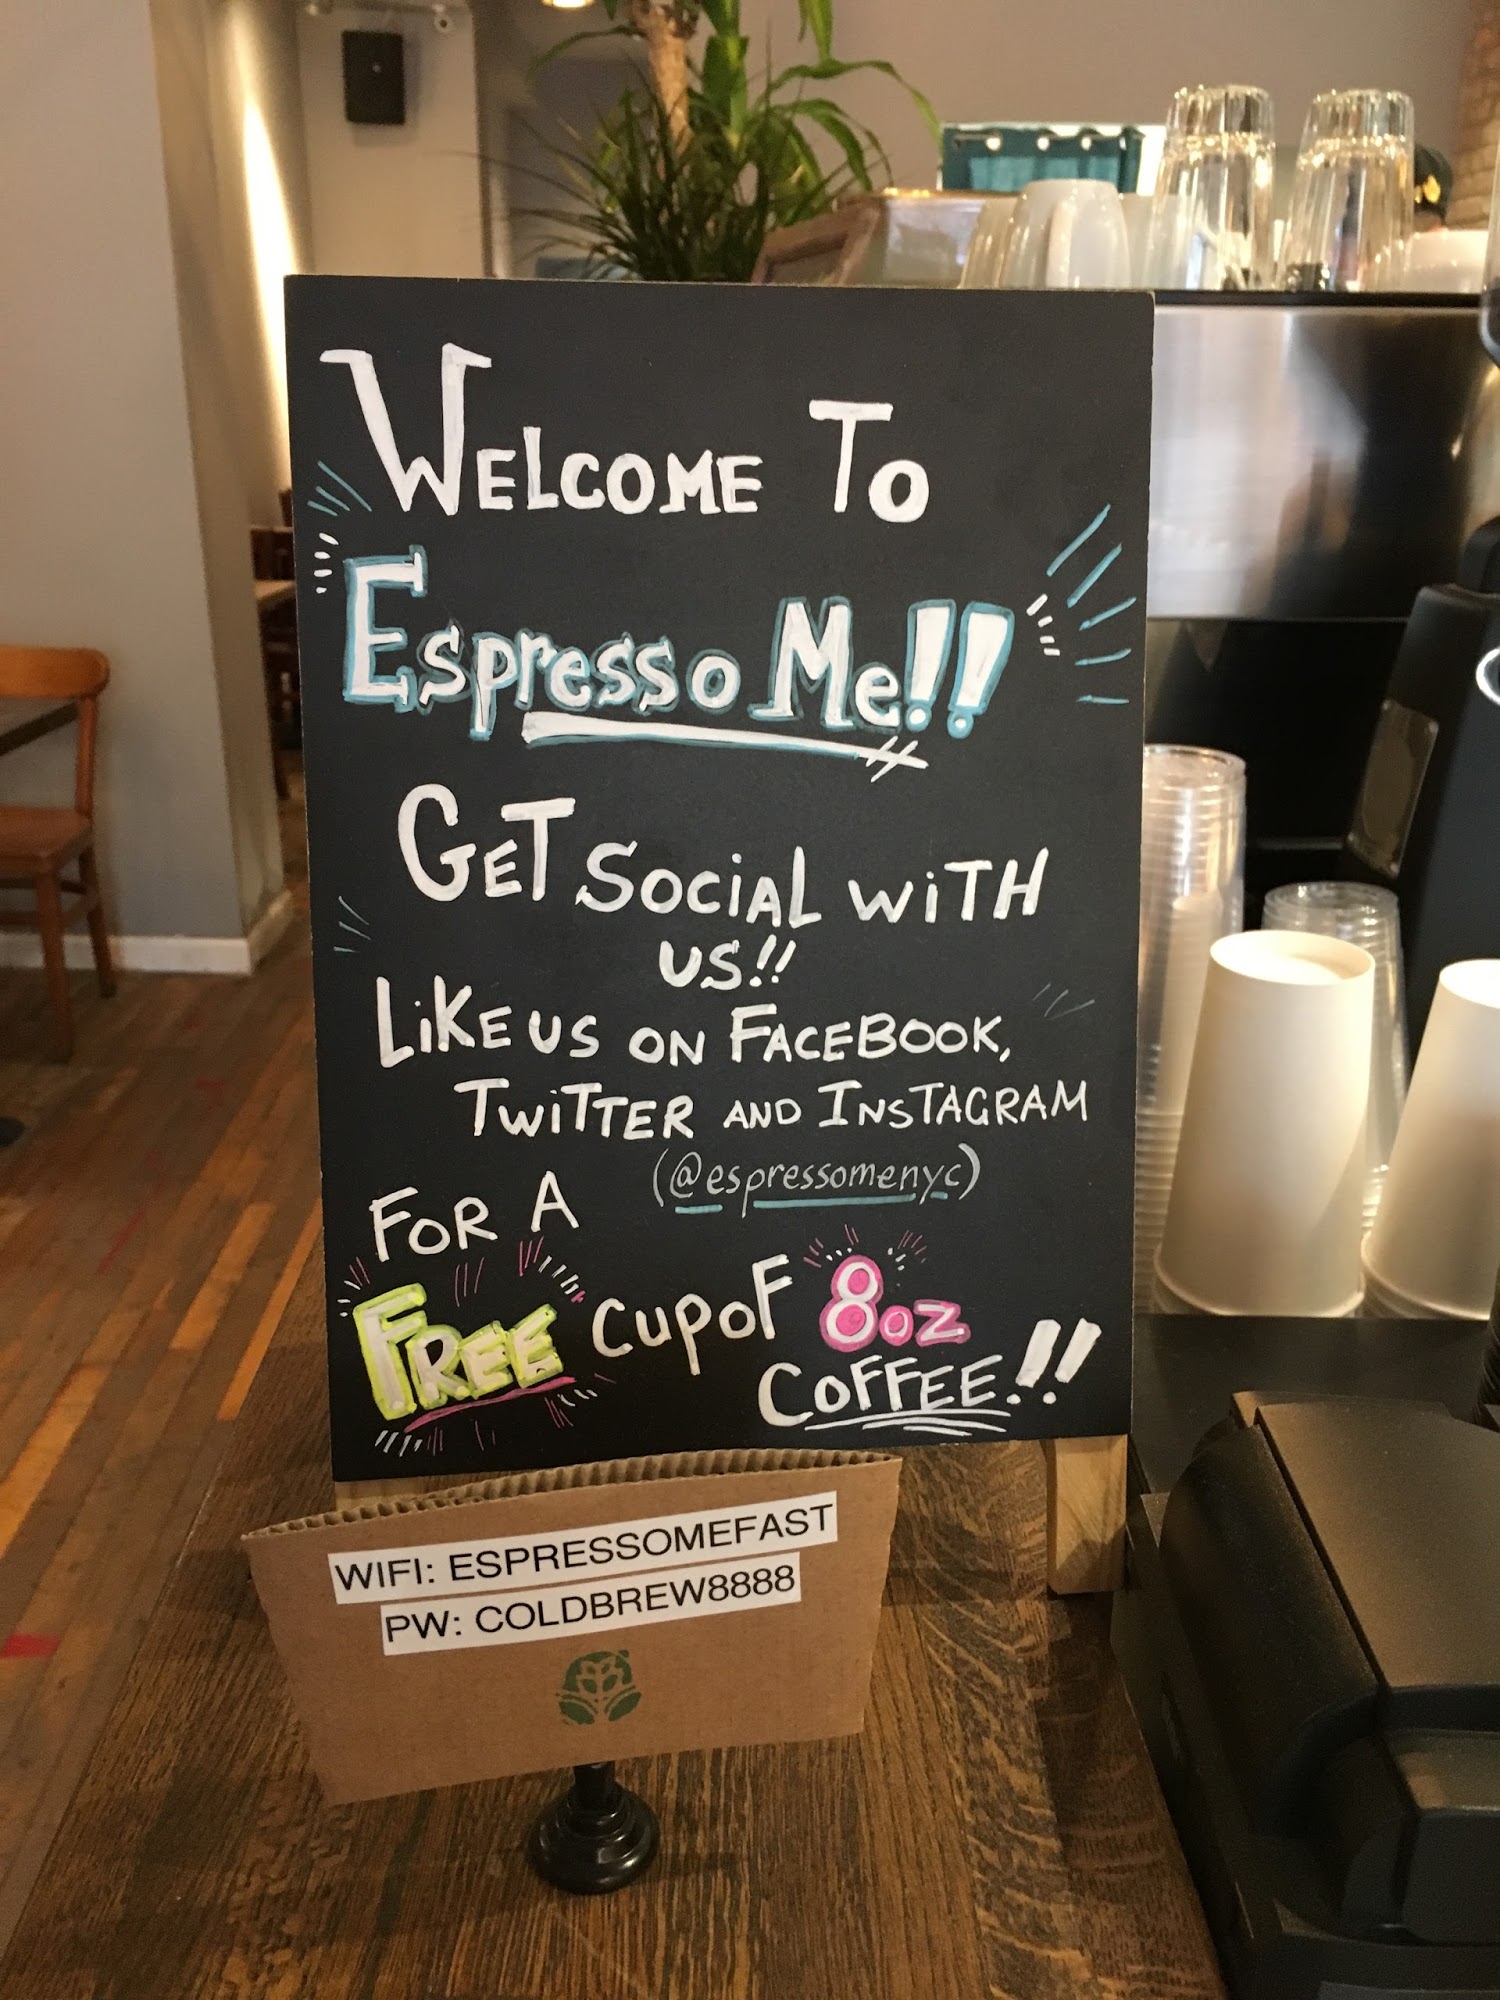 WELCOME TO
ESpresso Me!!
GET SOCiAL WiTH
US!!
LiKE US ON FACEBOOK,
TWiTTER AND INSTAGRAM
(@espressomenyc)
FOR A
FREE CUP OF 8oz
COFFEE!!
WIFI: ESPRESSOMEFAST
PW: COLDBREW8888